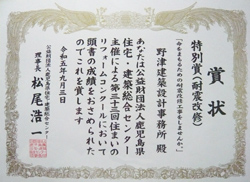 賞状
特別賞(耐震改修)
野津建築設計事務所 殿
あなたは公益財団法人鹿児島県
住宅・建築総合センター
主催による第三十三回住まいの
リフォームコンクールにおいて
頭書の成績をおさめられた
のでこれを賞します
令和五年九月三日
公益財団法人鹿児島県住宅・建築総合センター
理事長 松尾浩一